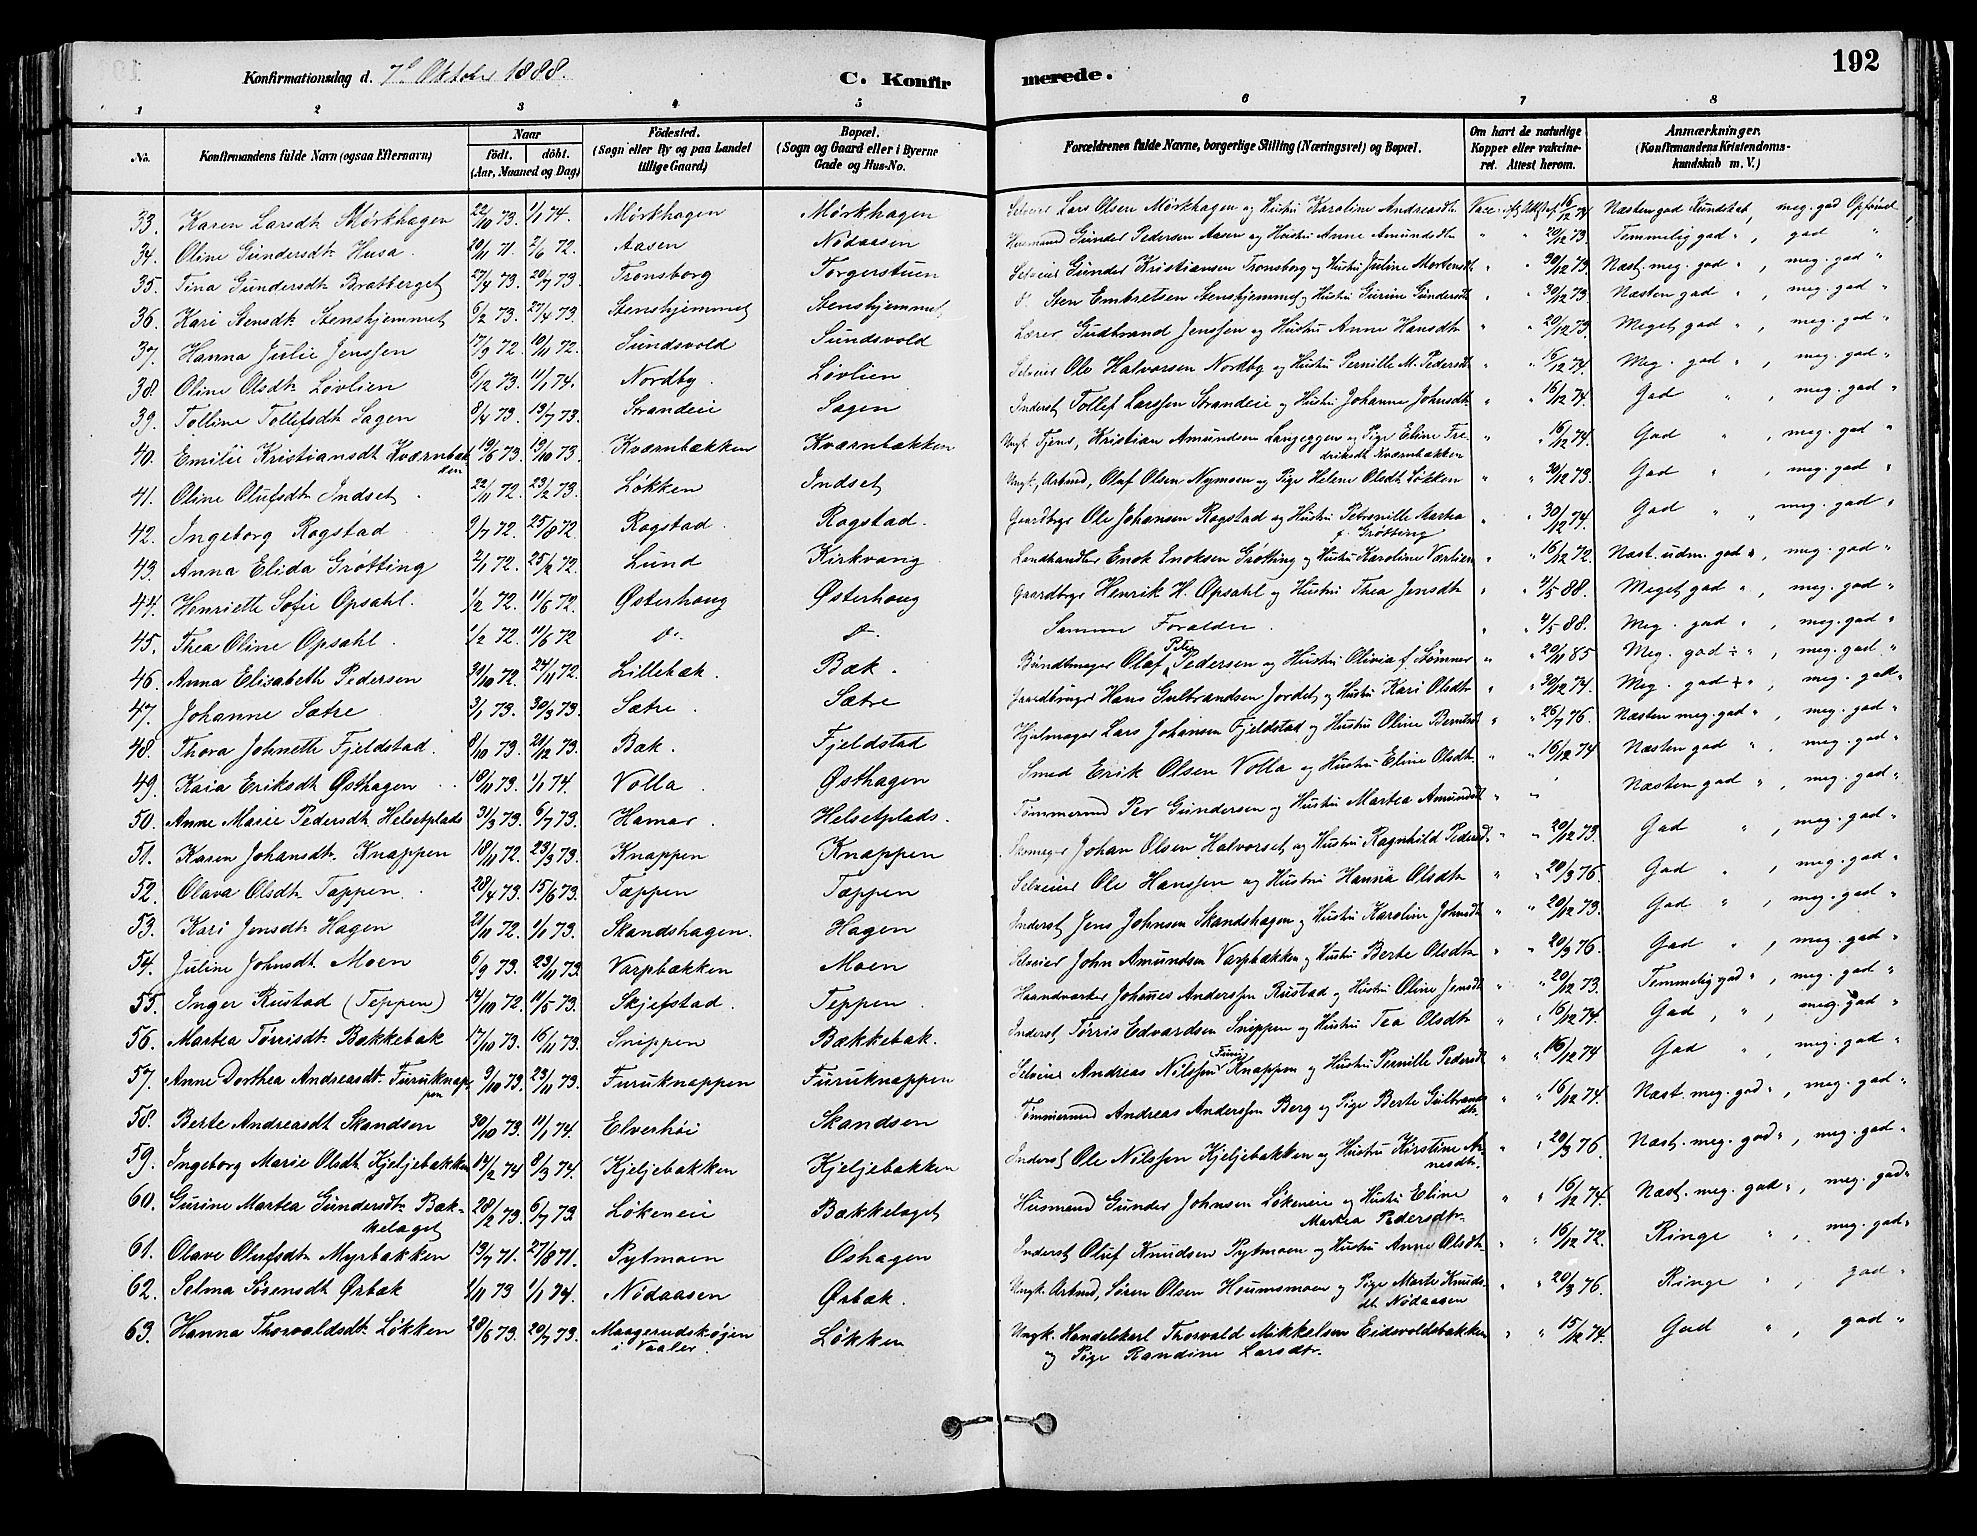 192
Konfirmationsdag d. 7de Oktober 1888.
C. Konfirmerede.
1 2 3 4 5 6 7 8
No. | Konfirmandens fulde Navn (ogsaa Efternavn) | Naar født. døbt. (Aar, Maaned og Dag) | Födested. (Sogn eller By og paa Landet tillige Gaard) | Bopæl. (Sogn og Gaard eller i Byerne Gade og Hus-No. | Forældrenes fulde Navne, borgerlige Stilling (Næringsvei) og Bopæl. | Om havt de naturlige Kopper eller vakcineret. Attest herom. | Anmærkninger. (Konfirmandens Kristendomskundskab m. V.)
33. Karen Larsdt. Mørkhagen 22/10 73. 1/1 74. Mørkhagen Mørkhagen Selveier Lars Olsen Mørkhagen og Hustru Karoline Andreasdt. Vacc. 16/12 74 Næsten god Kundskab, meg. god Opførsel
34. Oline Gundersdt. Husa. 20/11 71. 2/6 72. Aasen Nodaasen Husmand Gunder Pedersen Aasen og Hustru Anne Amundsdt. " " 20/12 73. Temmelig god ", god "
35. Tina Gundersdt. Bratberget 27/4 73. 20/7 73. Tronsborg Torgerstuen Selveier Gunder Kristiansen Tronsborg og Hustru Juline Mortensdt. " " 30/12 73. Næst. meg. god ", meg. god "
36. Kari Stensdt. Stenshjemmet 6/2 73. 27/4 73. Stenshjemmet Stenshjemmet Do. Sten Embretsen Stenshjemmet og Hustru Gurine Gundersdt. " " 30/12 73. Næsten god ", meg. god "
37. Hanna Julie Jenssen 17/9 72. 10/11 72. Sundsvold Sundsvold Lærer Gudbrand Jenssen og Hustru Anne Hansdt. " " 20/12 73. Meget god ", meg. god "
38. Oline Olsdt. Løvlien 6/12 73. 11/1 74. Nordby. Løvlien Selveier Ole Halvorsen Nordby og Hustru Pernille M. Pedersdt. " " 16/12 74. Meg. god ", meg. god "
39. Tolline Tollefsdt. Sagen 8/4 73. 13/7 73. Strandeie Sagen Inderst Tollef Larssen Strandeie og Hustru Johanne Johnsdt. " " 16/12 74. God ", meg. god "
40. Emilie Kristiansdt. Kværnbækken 19/6 73. 19/10 73. Kværnbækken Kværnbækken Ungk. Tjener, Kristian Amundsen Langeggen og Pige Eline Fredriksdt. Kværnbækken " " 16/12 74. God ", meg. god "
41. Oline Olufsdt. Indset. 22/11 72. 23/2 73. Løkken Indset Ungk., Arbmd, Olaf Olsen Nymoen og Pige Helene Olsdt. Løkken " " 30/12 73. God ", meg. god "
42. Ingeborg Rogstad 9/7 72. 25/8 72. Rogstad. Rogstad. Gaardbrgr Ole Johansen Rogstad og Hustru Petronille Martea f. Grøtting " " 30/12 74. God ", meg. god "
43. Anna Elida Grøtting 2/1 72. 25/2 72. Lund Kirkvang Landhandler Enok Enoksen Grøtting og Hustru Karoline Værlien " " 16/12 72. Næst. udm. god ", meg. god "
44. Henriette Sofie Opsahl. 1/2 72. 11/6 72. Østerhoug Østerhoug Gaardbrgr Henrik H. Opsahl og Hustru Thea Jensdt. " " 4/5 88. Meget god ", meg. god "
45. Thea Oline Opsahl. 1/2 72. 11/6 72 do. do. Samme Forældre. " " 4/5 88. Meg. god ", meg. god "
46. Anna Elizabeth Pedersen 30/10 72. 24/11 72. Lillebæk. Bæk. Bundtmager Olaf Peter Pedersen og Hustru Olivia f. Stømner " " 20/11 85 Meg. god ÷ ", meg. god "
47. Johanne Sætre 3/1 73. 30/3 73. Sætre. Sætre Gaardbruger Hans Gulbrandsen Jordet og Hustru Kari Olsdt. " " 30/12 74. Meg. god ÷ ", meg. god "
48. Thora Johnette Fjeldstad. 8/10 73. 21/12 73. Bæk. Fjeldstad Hjulmager Lars Johansen Fjeldstad og Hustru Oline Berntsdt. " " 26/7 76. Næsten meg. god ", meg. god "
49. Kaia Eriksdt. Østhagen 10/11 73. 1/1 74. Volla Østhagen Smed Erik Olsen Volla og Hustru Eline Olsdt. " " 16/12 74 Næsten god ", meg. god "
50. Anne Marie Pedersdt. Helsetplads 31/3 73. 6/7 73. Hamar. Helsetplads. Tømmermd Per Gundersen og Hustru Martea Amundsdt. " " " Næsten god ", meg. god "
51. Karen Johansdt. Knappen 18/11 72. 23/3 73. Knappen Knappen Skomager Johan Olsen Halvorset og Hustru Ragnhild Pedersdt. " " 20/12 73. God ", meg. god "
52. Olava Olsdt. Tæppen. 28/4 73. 15/6 73. Tæppen Tæppen Selveier Ole Hanssen og Hustru Hanna Olsdt. " " 20/3 76. God ", meg. god "
53. Kari Jensdt. Hagen 21/10 72. 1/1 73. Skandshagen. Hagen Inderst Jens Johnsen Skandshagen og Hustru Karoline Johnsdt. " " 20/12 73. God ", meg. god "
54. Juline Johnsdt. Moen 6/9 73. 23/11 73. Varpbækken Moen Selveier John Amundsen Varpbækken og Hustru Berte Olsdt. " " 20/3 76. God ", meg. god "
55. Inger Rustad (Teppen) 14/10 72. 11/5 73. Skjefstad. Teppen. Haandværker Johannes Anderssen Rustad og Hustru Oline Jensdt. " " 20/12 73. Temmelig god ", meg. god "
56. Martea Tørrisdt. Bækkebak 17/10 73. 16/11 73. Snippen Bækkebak. Inderst Tørris Edvardsen Snippen og Hustru Tea Olsdt. " " 16/12 74. God, ", meg. god "
57. Anne Dorthea Andreasdt. Furuknappen 9/10 73. 23/11 73. Furuknappen Furuknappen Selveier Andreas Nilssen Furu Knappen og Hustru Pernille Pedersdt. " " 16/12 74 God ", meg. god "
58. Berte Andreasdt. Skandsen 30/10 73. 11/1 74. Elverhøi Skandsen Tømmermd Andreas Anderssen Berg og Pige Berte Gulbrandsdt. " " 16/12 74. Næst. meg. god ", meg. god "
59. Ingeborg Marie Olsdt. Kjeljebakken 14/2 74 8/3 74. Kjeljebakken Kjeljebakken Inderst Ole Nilssen Kjeljebakken og Hustru Kirstine Arnesdt. " " 20/3 76. Næst. meg. god ", meg. god "
60. Gurine Martea Gundersdt. Bækkelaget 28/2 73. 6/7 73. Løkeneie Bækkelaget Husmand Gunder Johnsen Løkeneie og Hustru Eline Martea Pedersdtr. " " 16/12 74. Næst. meg. god ", meg. god "
61. Olave Olufsdt. Myrbakken 13/7 71. 27/8 71. Pytmoen Oshagen Inderst Oluf Knudsen Pytmoen og Hustru Anne Olsdt. " " 16/12 72. Ringe ", meg. god "
62. Selma Sørensdt. Ørbæk 2/11 73 1/1 74. Nodaasen Ørbæk. Ungk. Arbmd, Søren Olsen Houmsmoen og Pige Marte Knudsdt. Nodaasen " " 20/3 76. Ringe ", god "
63. Hanna Thorvaldsdt. Løkken 28/6 73. 20/7 73. Maagerudskøjen i Vaaler. Løkken Ungk. Handelskarl Thorvald Mikkelsen Eidsvoldsbakken og Pige Randine Larsdtr. " " 15/12 74. God ", god "